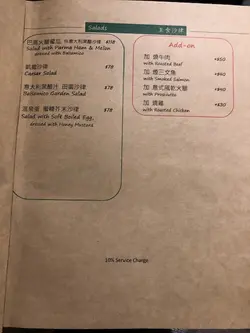 Salads 主食沙律
巴馬火腿蜜瓜, 伴意大利黑醋沙律 $118
Salad with Parma Ham & Melon
dressed with Balsamico
凱撒沙律 $78
Caesar Salad
意大利黑醋汁, 田園沙律 $78
Balsamico Garden Salad
溫泉蛋, 蜜糖芥末沙律 $78
Salad with Soft Boiled Egg,
dressed with Honey Mustard
Add-on
加 燒牛肉 +$50
with Roasted Beef
加 煙三文魚 +$40
with Smoked Salmon
加 意式風乾火腿 +$40
with Prosciutto
加 燒雞 +$30
with Roasted Chicken
10% Service Charge